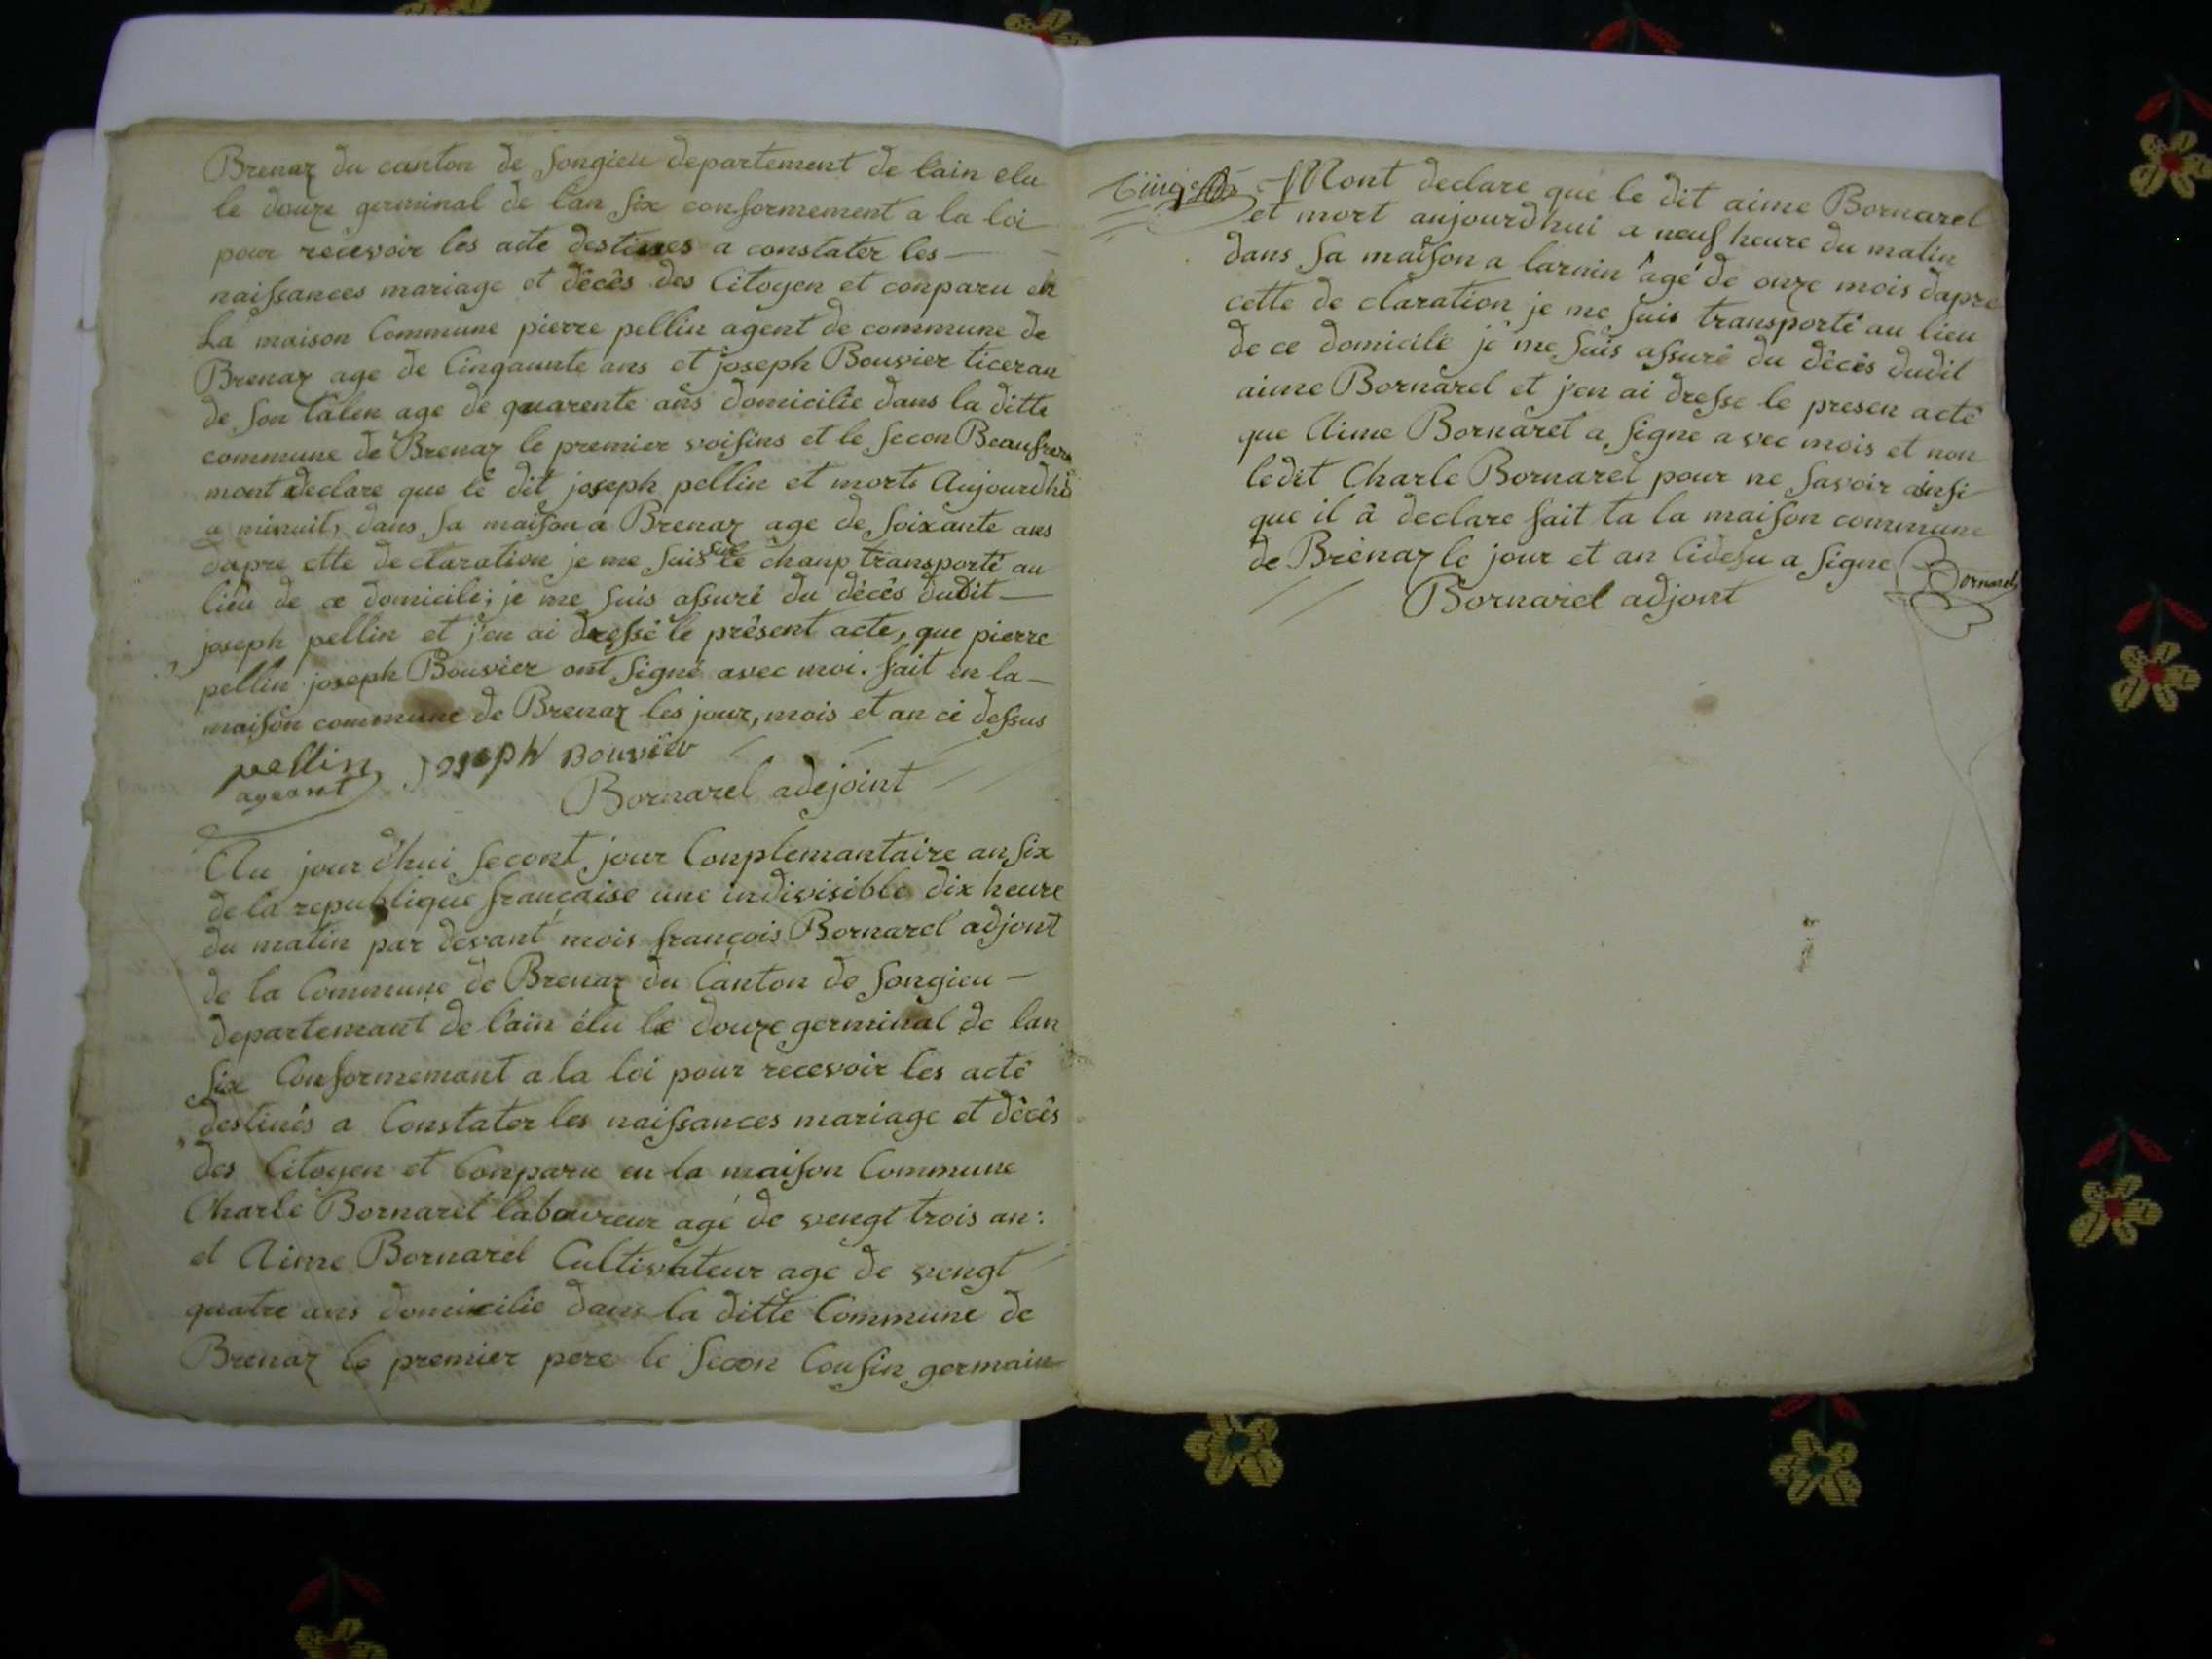 Brenaz du canton de songieu departement de l'ain elu
le douze germinal de l'an six conformement a la loi
pour recevoir les acte destines a constater les
naissances mariage et décês des Citoyen et conparu en
La maison Commune pierre pellin agent de commune de
Brenaz age de Cinqaunte ans et joseph Bouvier ticeran
de son tâlen age de quarente ans domicilie dans la ditte
commune de Brenaz le premier voisins et le secon Beaufrere
mont declare que le dit joseph pellin et morts Aujourdhui
a minuit, dans sa maison a Brenaz age de soixante ans
dapre ette declaration je me suis sur le chanp transporté au
lieu de ce domicile; je me suis assuré du décês dudit
joseph pellin et j'en ai dressé le prêsent acte, que pierre
pellin joseph Bouvier ont signé avec moi. fait en la
maison commune de Brenaz les jour, mois et an ci dessus
pellin joseph Bouvier
ageant
Bornarel adejoint
Au jour d'hui secont jour Conplemantaire an six
de la republique française une indivisible dix heure
du matin par devant mois françois Bornarel adjont
de la Commune de Brenaz du Canton de songieu
departemant de l'ain élu le douze germinal de lan
six Conformemant a la loi pour recevoir les acté
destinês a Constater les naissances mariage et dêcês
des Citoyen et Conparu en la maison Commune
Charle Bornarel laboureur agé de vengt trois an:
et Aime Bornarel Cultivateur age de vengt
quatre ans domicilie dans la ditte Commune de
Brenaz le premier pere le secon Cousin germain
Mont declare que le dit aime Bornarel
et mort aujourdhui a neuf heure du matin
dans sa maison a larnin âgé de onze mois dapre
cette de claration je me suis transporté au lieu
de ce domicile je me suis assuré du dêcês dudit
aime Bornarel et j'en ai dresse le presen acté
que Aime Bornarel a signe avec mois et non
ledit Charle Bornarel pour ne savoir ainsi
que il â declare fait ta la maison commune
de Brénaz le jour et an cidesu a signe Bornarel
Bornarel adjont